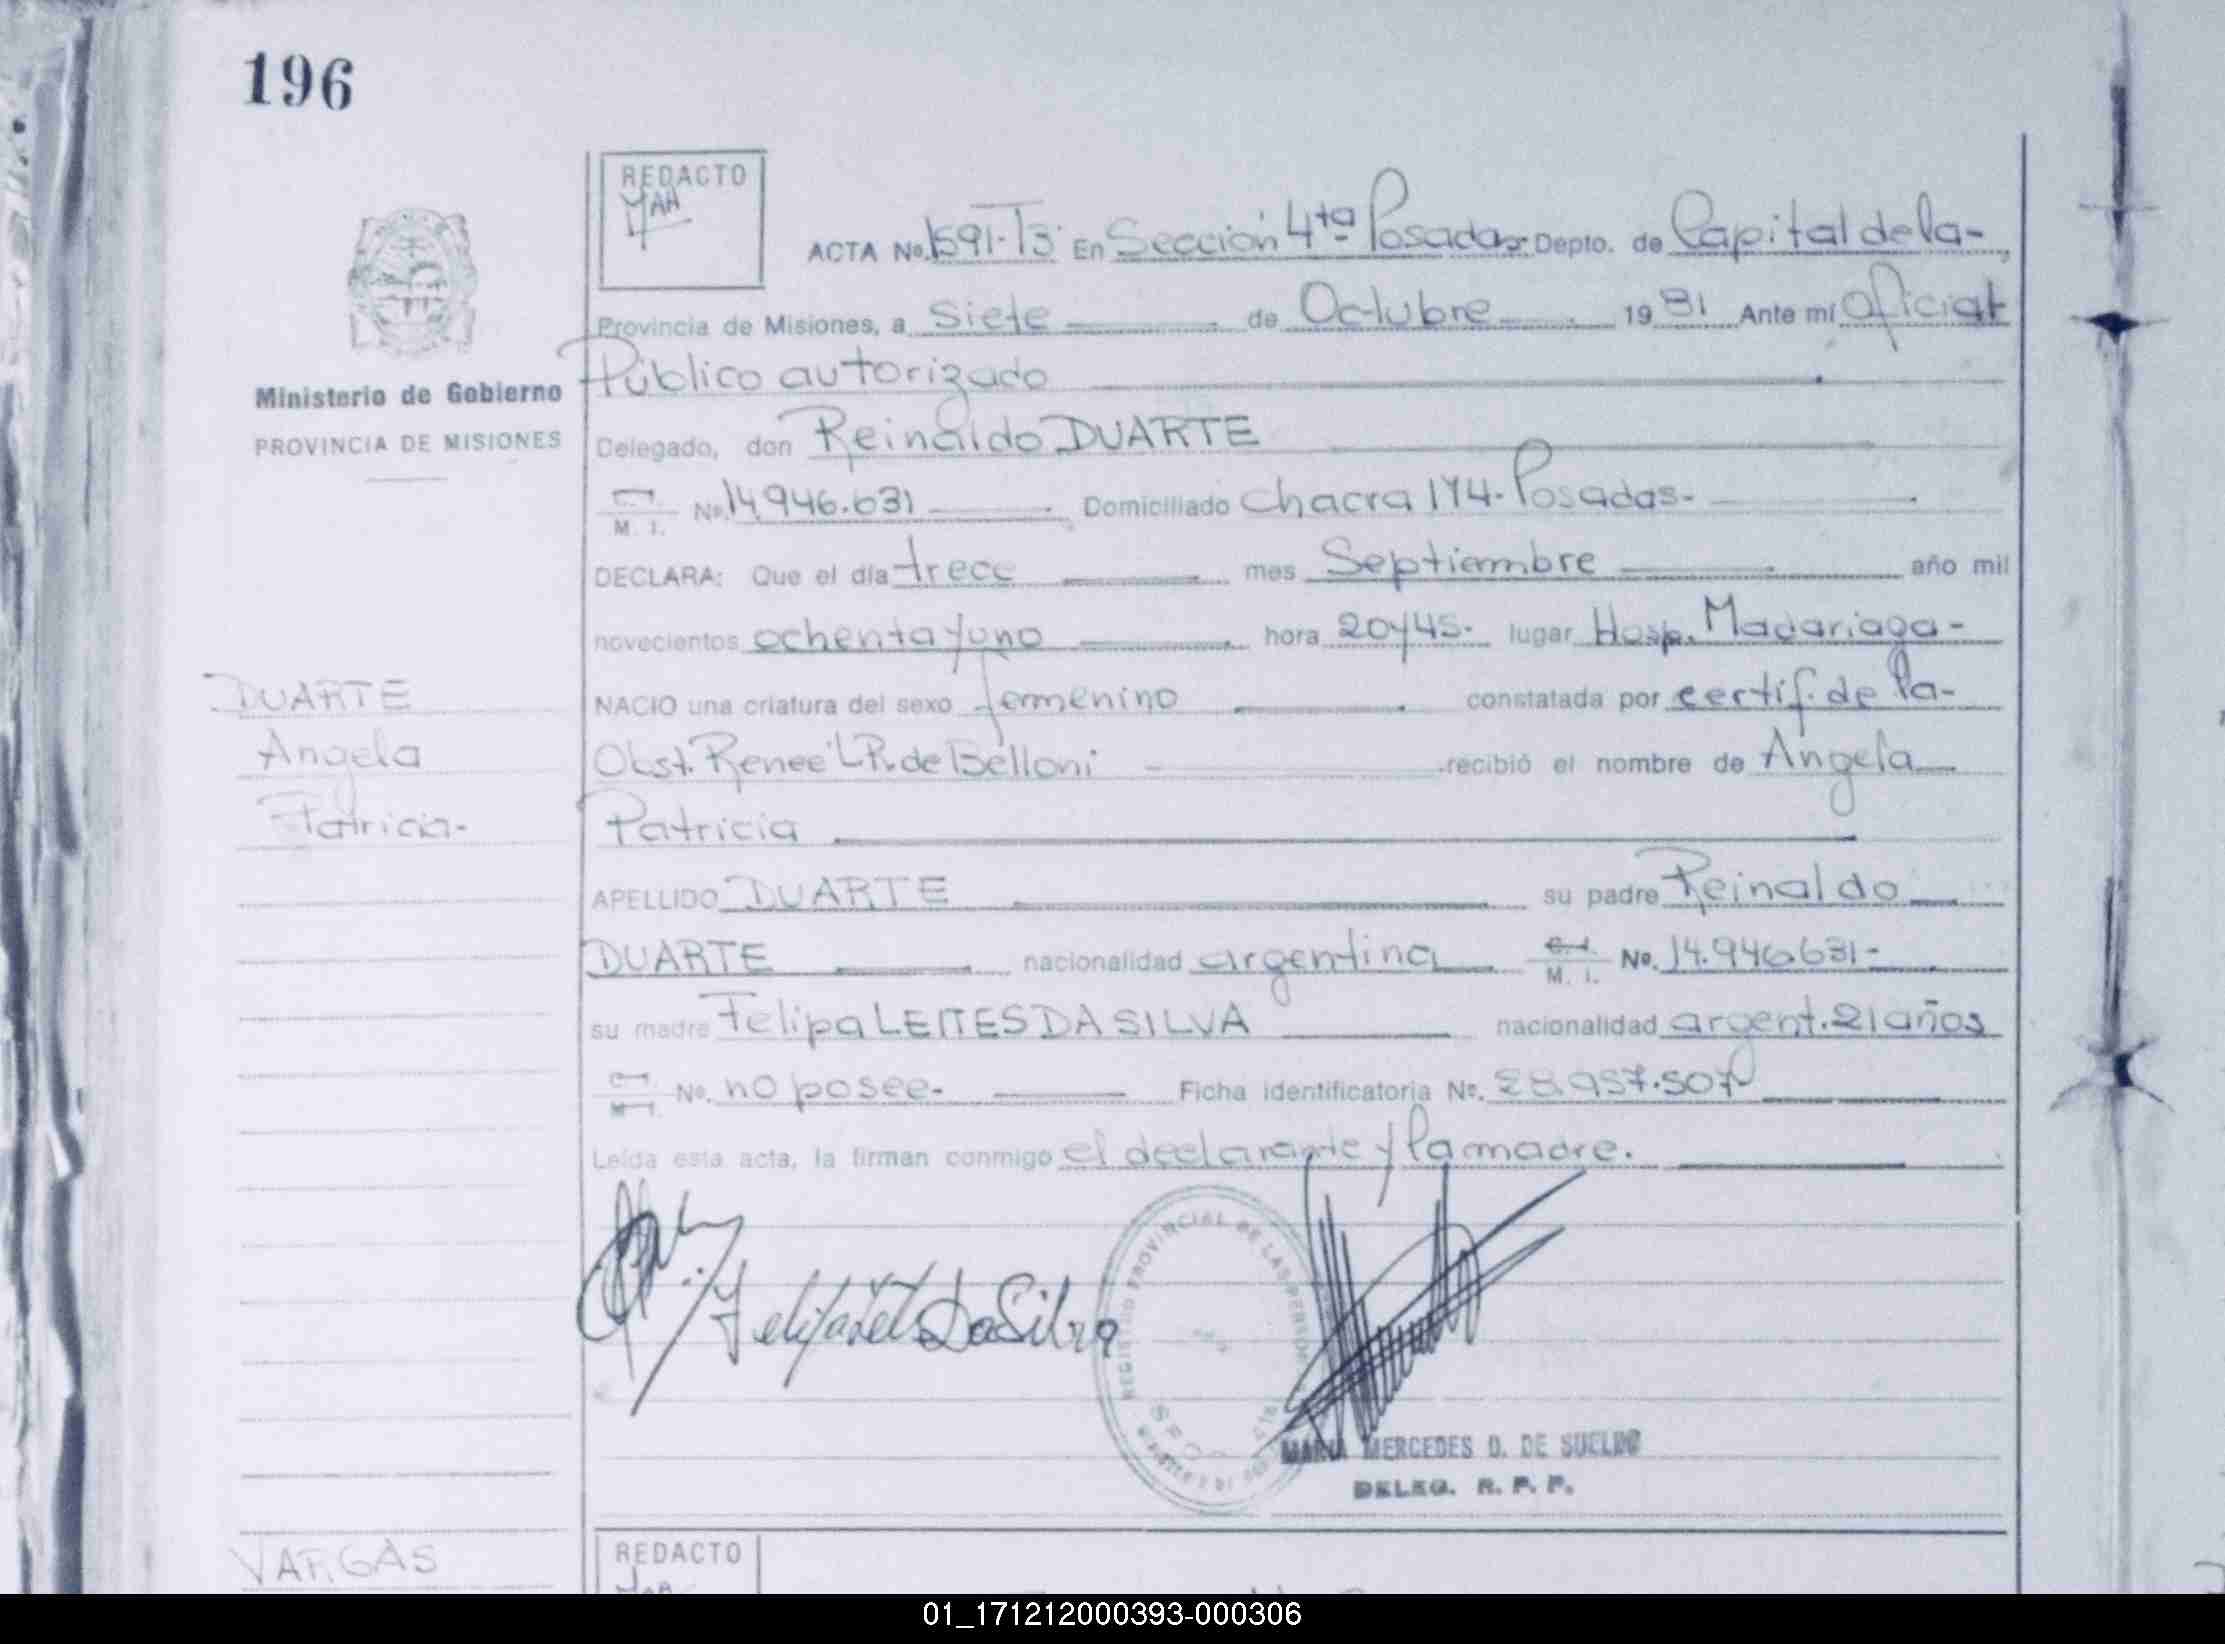 196
REDACTO
ACTA No. 1591-T3 En Sección 4ta Posadas- Depto. de Capital de la-,
Provincia de Misiones, a siete de Octubre 1981 Ante mí Oficial
Público autorizado
Ministerio de Gobierno
PROVINCIA DE MISIONES
Delegado, don Reinaldo DUARTE
M. I. No. 14.946.631 Domiciliado Chacra 174- Posadas-
DECLARA: Que el día trece mes Septiembre año mil
novecientos ochenta y uno hora 20 y 45- lugar Hosp. Madariaga-
NACIO una criatura del sexo femenino constatada por certif. de la-
Obst. Renee L.P. de Belloni recibió el nombre de Angela
Patricia
DUARTE
Angela
Patricia-
APELLIDO DUARTE su padre Reinaldo
DUARTE nacionalidad argentina C. I. M. I. No. 14.946.631-
su madre Felipa LEITES DA SILVA nacionalidad argent. 21 años
C. I. M. I. No. no posee- Ficha identificatoria No. 28.957.507
Leída esta acta, la firman conmigo el declarante y la madre.
REGISTRO PROVINCIAL DE LAS PERSONAS
MARIA MERCEDES D. DE SUELDO
DELEG. R. P. P.
VARGAS
REDACTO
01_171212000393-000306